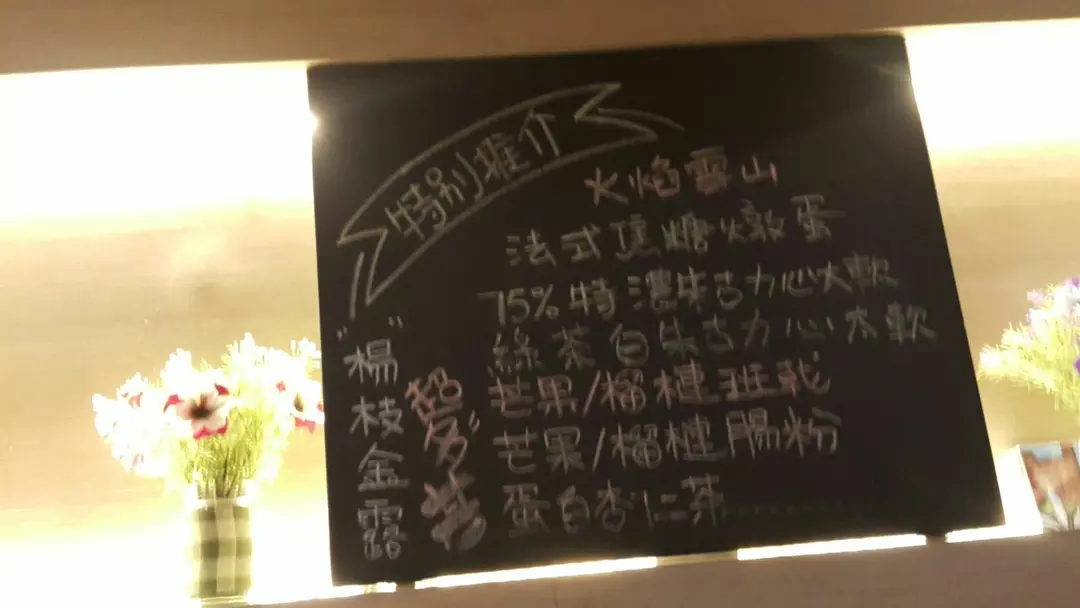 特別推介
火焰雪山
法式焦糖燉蛋
75%特濃朱古力心太軟
綠茶白朱古力心太軟
芒果/榴槤班戟
芒果/榴槤腸粉
蛋白杏仁茶........
"楊枝金露"
超多